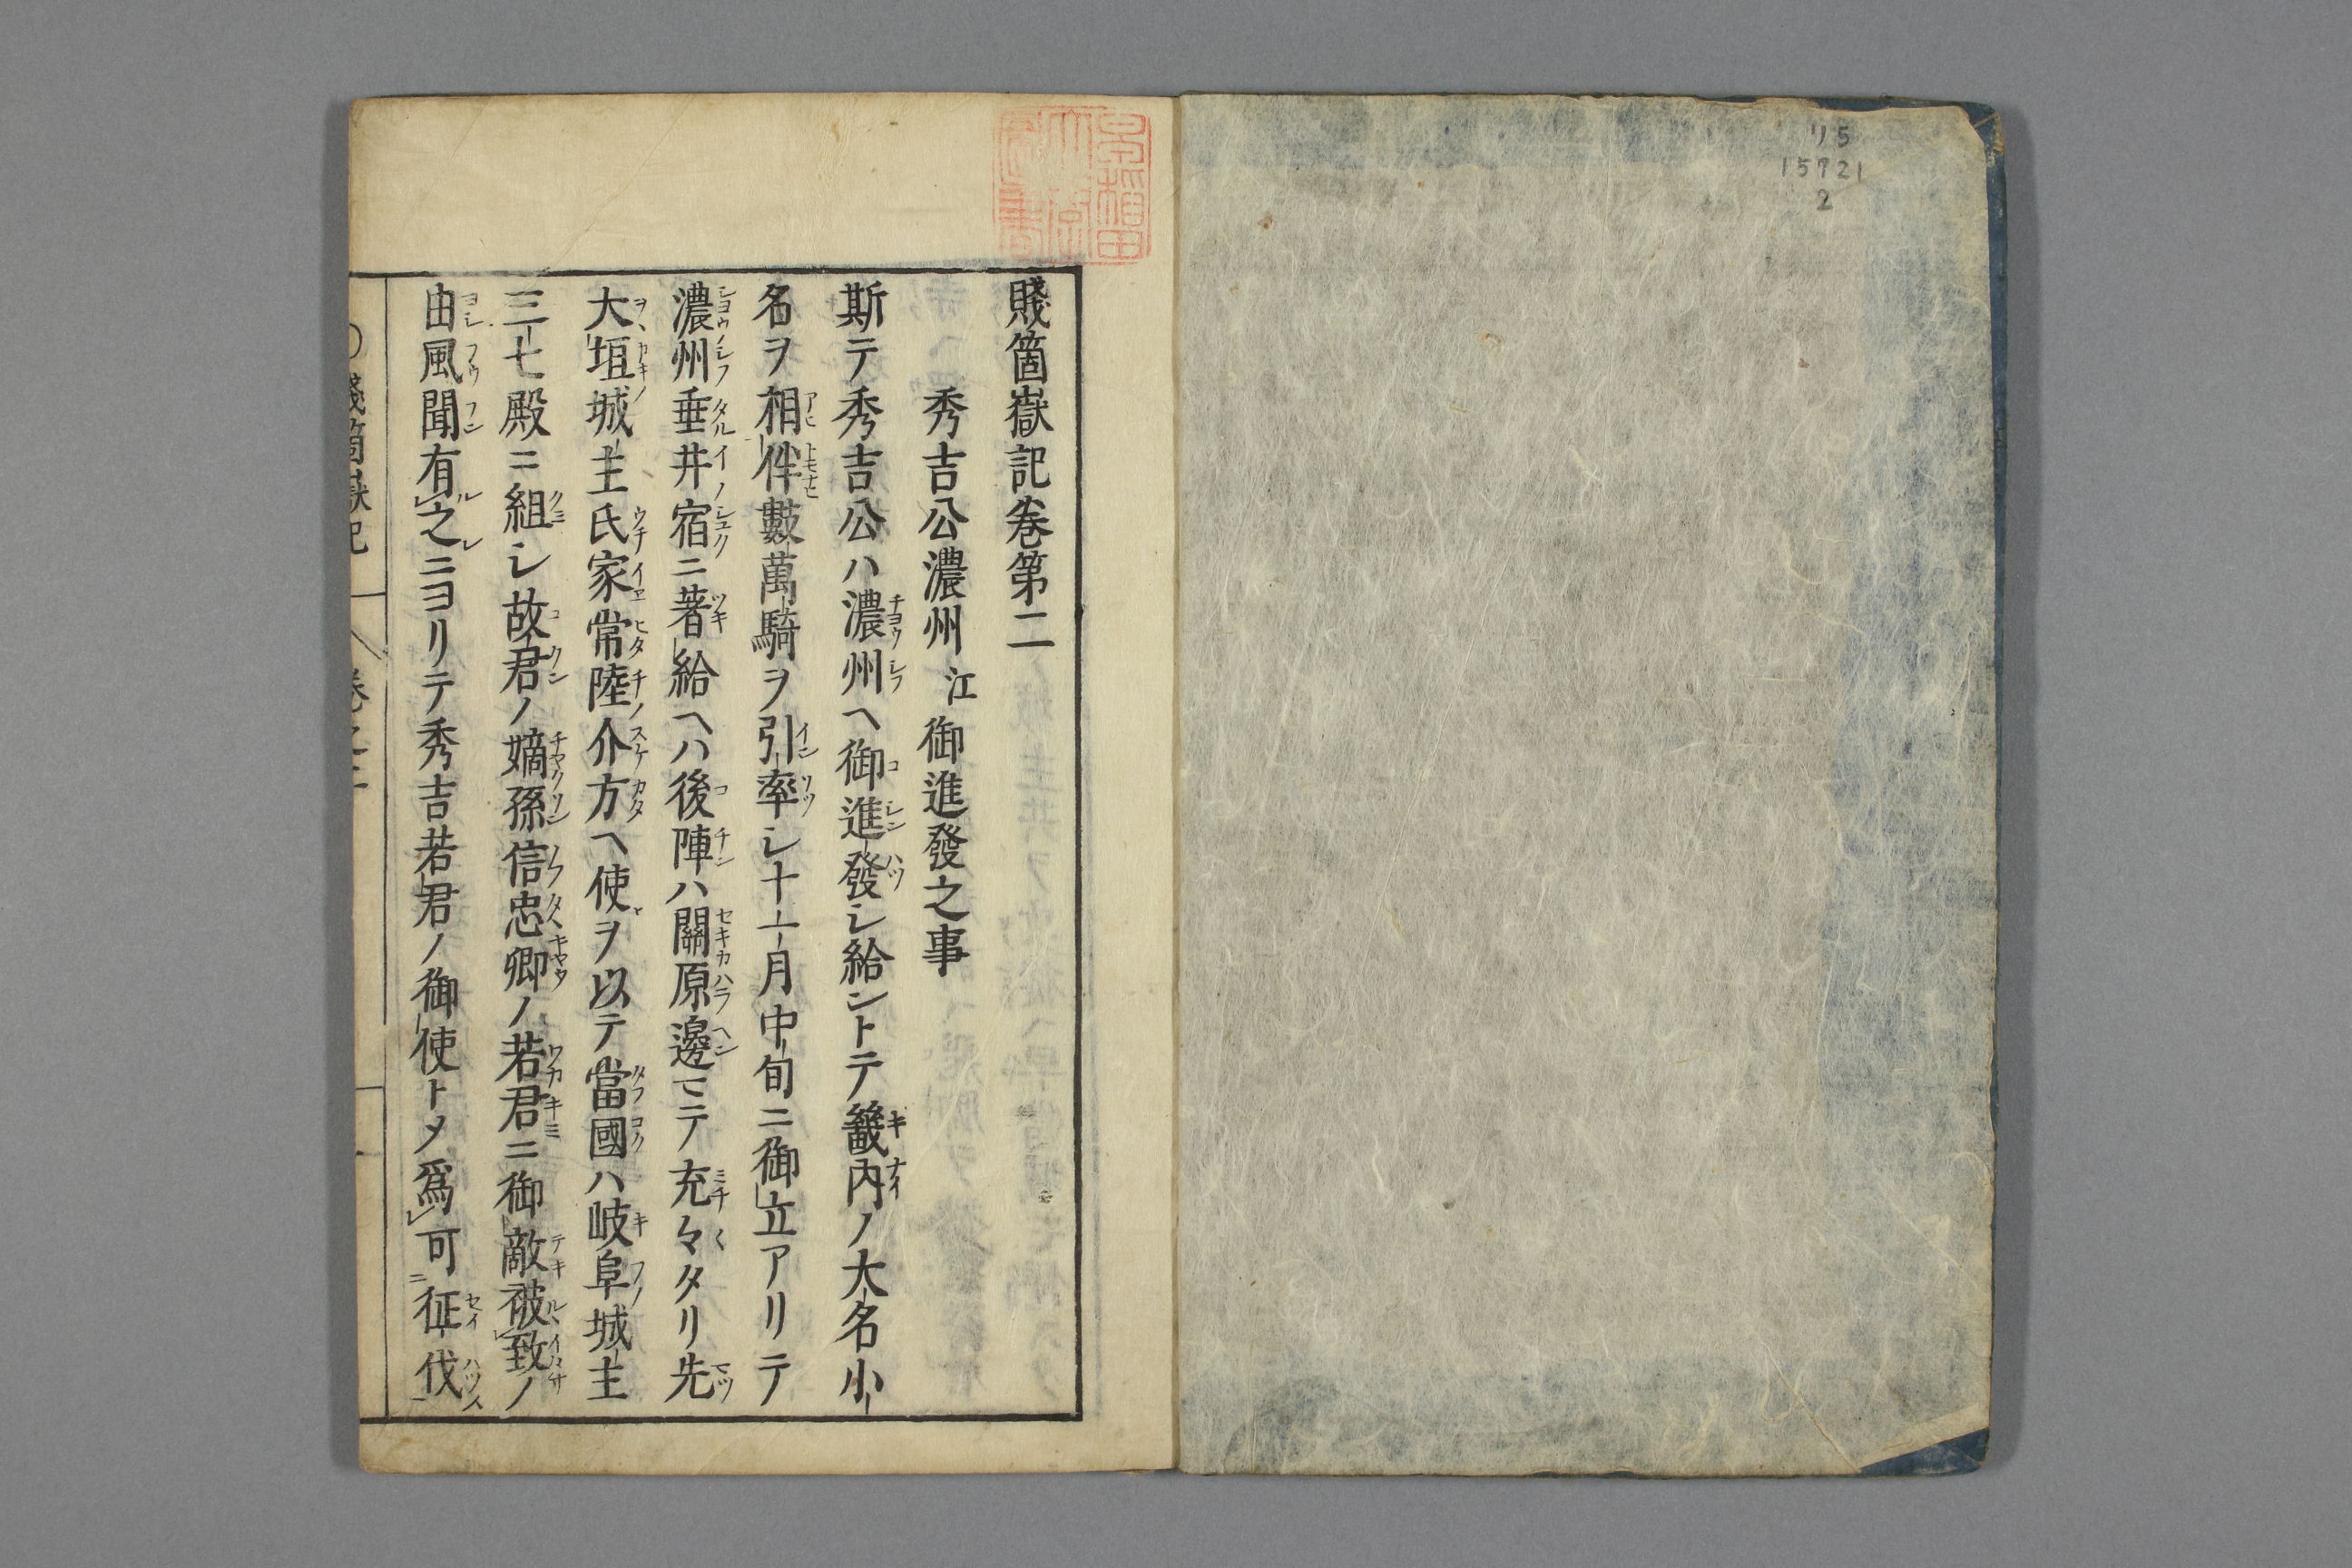 リ5
15721
2
賤箇嶽記卷第二
秀吉公濃州江御進發之事
斯テ秀吉公ハ濃州ヘ御進發シ給ントテ畿内ノ大名小
名ヲ相伴數萬騎ヲ引率シ十一月中旬ニ御立アリテ
濃州垂井宿ニ著給ヘハ後陣ハ關原邊マテ充々タリ先
大垣城主氏家常陸介方ヘ使ヲ以テ當國ハ岐阜城主
三七殿ニ組シ故君ノ嫡孫信忠卿ノ若君ニ御敵被致ノ
由風聞有之ニヨリテ秀吉若君ノ御使トメ爲可征伐